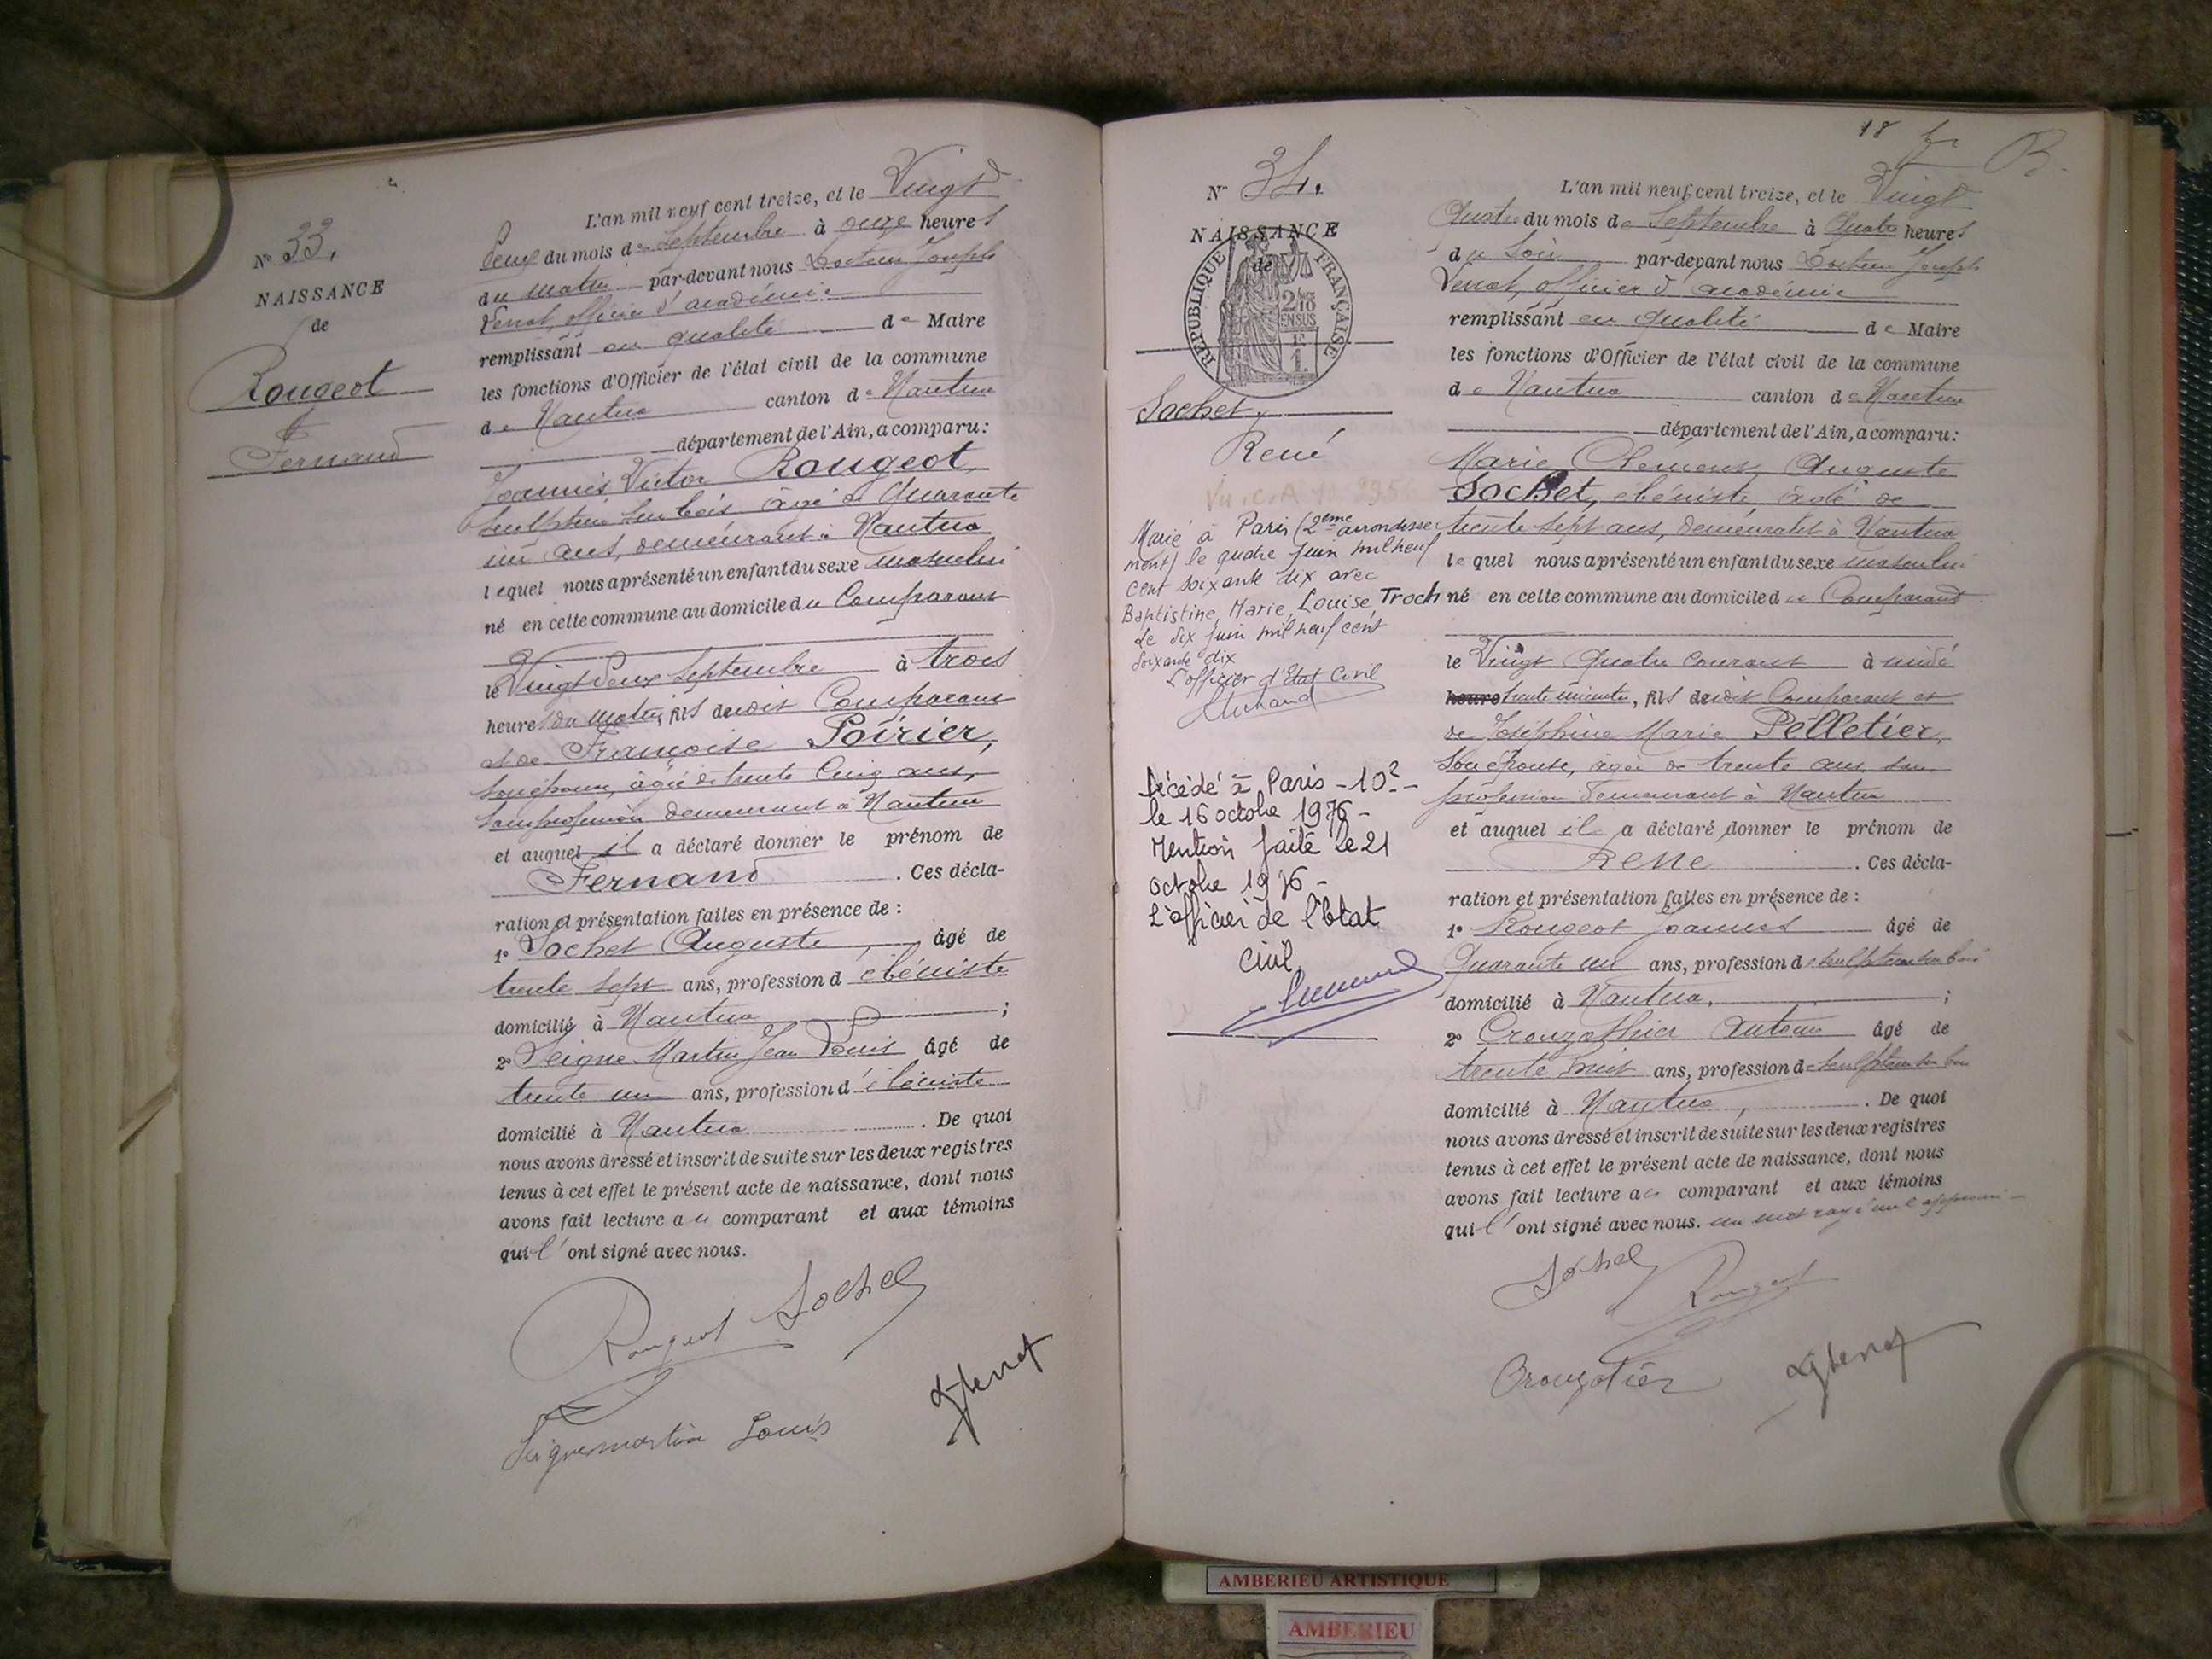 N° 33.
NAISSANCE
de
Rougeot
Fernand
L'an mil neuf cent treize, et le Vingt
deux du mois de Septembre à onze heures
du matin par-devant nous Docteur Joseph
officier d'académie
remplissant en qualité de Maire
les fonctions d'Officier de l'état civil de la commune
de Nantua canton de Nantua
département de l'Ain, a comparu:
Joannès Victor Rougeot,
sculpteur sur bois âgé de Quarante
un ans, demeurant à Nantua
lequel nous a présenté un enfant du sexe masculin
né en cette commune au domicile du Comparant
le Vingt deux Septembre à trois
heures du matin, fils dudit Comparant
et de Françoise Poirier,
son épouse, âgée de trente cinq ans,
sans profession demeurant à Nantua
et auquel il a déclaré donner le prénom de
Fernand. Ces décla-
ration et présentation faites en présence de :
1° Sochet Auguste, âgé de
trente sept ans, profession d'ébéniste
domicilié à Nantua ;
2° Seigne Martin Jean Louis âgé de
trente un ans, profession d'ébéniste
domicilié à Nantua. De quoi
nous avons dressé et inscrit de suite sur les deux registres
tenus à cet effet le présent acte de naissance, dont nous
avons fait lecture au comparant et aux témoins
qui l'ont signé avec nous.
Rougeot Sochet
Seignemartin Louis
18
B.
N° 34.
NAISSANCE
de
REPUBLIQUE FRANÇAISE
2/10 EN SUS
Sochet,
René
Marié à Paris (2ème arrondisse
ment) le quatre juin mil neuf
cent soixante dix avec
Baptistine, Marie, Louise, Troch
Le dix juin mil neuf cent
soixante dix
L'officier d'Etat Civil
Décédé à Paris - 10e -
le 16 octobre 1976 -
Mention faite le 21
octobre 1976 -
L'officier de l'Etat
Civil,
L'an mil neuf cent treize, et le Vingt
Quatre du mois de Septembre à Quatre heures
du Soir par-devant nous Docteur Joseph
officier d'académie
remplissant en qualité de Maire
les fonctions d'Officier de l'état civil de la commune
de Nantua canton de Nantua
département de l'Ain, a comparu:
Marie Clément Auguste
Sochet, ébéniste, âgé de
trente sept ans, demeurant à Nantua
lequel nous a présenté un enfant du sexe masculin
né en cette commune au domicile du Comparant
le Vingt Quatre courant à midi
heure trente minutes, fils dudit Comparant et
de Joséphine Marie Pelletier,
son épouse, âgée de trente ans, sans
profession demeurant à Nantua
et auquel il a déclaré donner le prénom de
René. Ces décla-
ration et présentation faites en présence de :
1° Rougeot Joannès âgé de
Quarante un ans, profession de sculpteur sur bois
domicilié à Nantua, ;
2° Crouzothier Antoine âgé de
trente huit ans, profession de sculpteur sur bois
domicilié à Nantua, . De quoi
nous avons dressé et inscrit de suite sur les deux registres
tenus à cet effet le présent acte de naissance, dont nous
avons fait lecture au comparant et aux témoins
qui l'ont signé avec nous. un mot rayé nul approuvé
Sochet
Rougeot
Crouzotier
AMBERIEU ARTISTIQUE
AMBERIEU